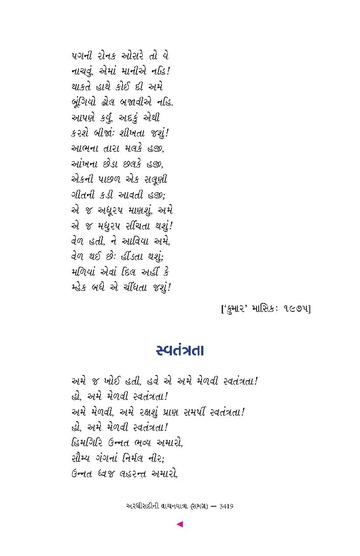 પગની રોનક ઓસરે તો વે
નાચવું, એમાં માનીએ નહિ!
થાકતે હાથે કોઈ દી અમે
બૂંગિયો ઢોલ બજાવીએ નહિ.
આપણે કર્યું, અદકું એથી
કરશે બીજાંઃ શીખતા જશું!
આભના તારા મલકે હજી,
આંખના છેડા છલકે હજી,
એકની પાછળ એક સલૂણી
ગીતની કડી આવતી હજી;
એ જ અધૂરપ માણશું, અમે
એ જ મધુરપ સીંચતા થશું!
વેળ હતી, ને આવિયા અમે,
વેળ થઈ છેઃ હીંડતા થશું;
મળિયાં એવાં દિલ અહીં કે
મ્હેક બધે એ ચીંધતા જશું!
['કુમાર' માસિકઃ ૧૯૭૫]
સ્વતંત્રતા
અમે જ ખોઈ હતી, હવે એ અમે મેળવી સ્વતંત્રતા!
હો, અમે મેળવી સ્વતંત્રતા!
અમે મેળવી, અમે રક્ષશું પ્રાણ સમર્પી સ્વતંત્રતા!
હો, અમે મેળવી સ્વતંત્રતા!
હિમગિરિ ઉન્નત ભવ્ય અમારો,
સૌમ્ય ગંગનાં નિર્મલ નીર;
ઉન્નત ધ્વજ લહરન્ત અમારો,
અરધીસદીની વાચનયાત્રા (સમગ્ર) — 3419